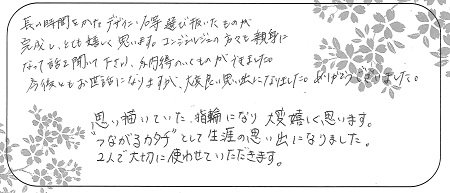 長い時間をかけ デザイン・石等 選び抜いたものが
完成し、とても嬉しく思います。コンシェルジュの方々も親身に
なって話を聞いて下さり、納得のいくものができました。
今後もお世話になりますが、大変良い思い出になりました。ありがとうございました。
思い描いていた指輪になり 大変嬉しく思います。
"つながるカタチ"として生涯の思い出になりました。
2人で大切に使わせていただきます。